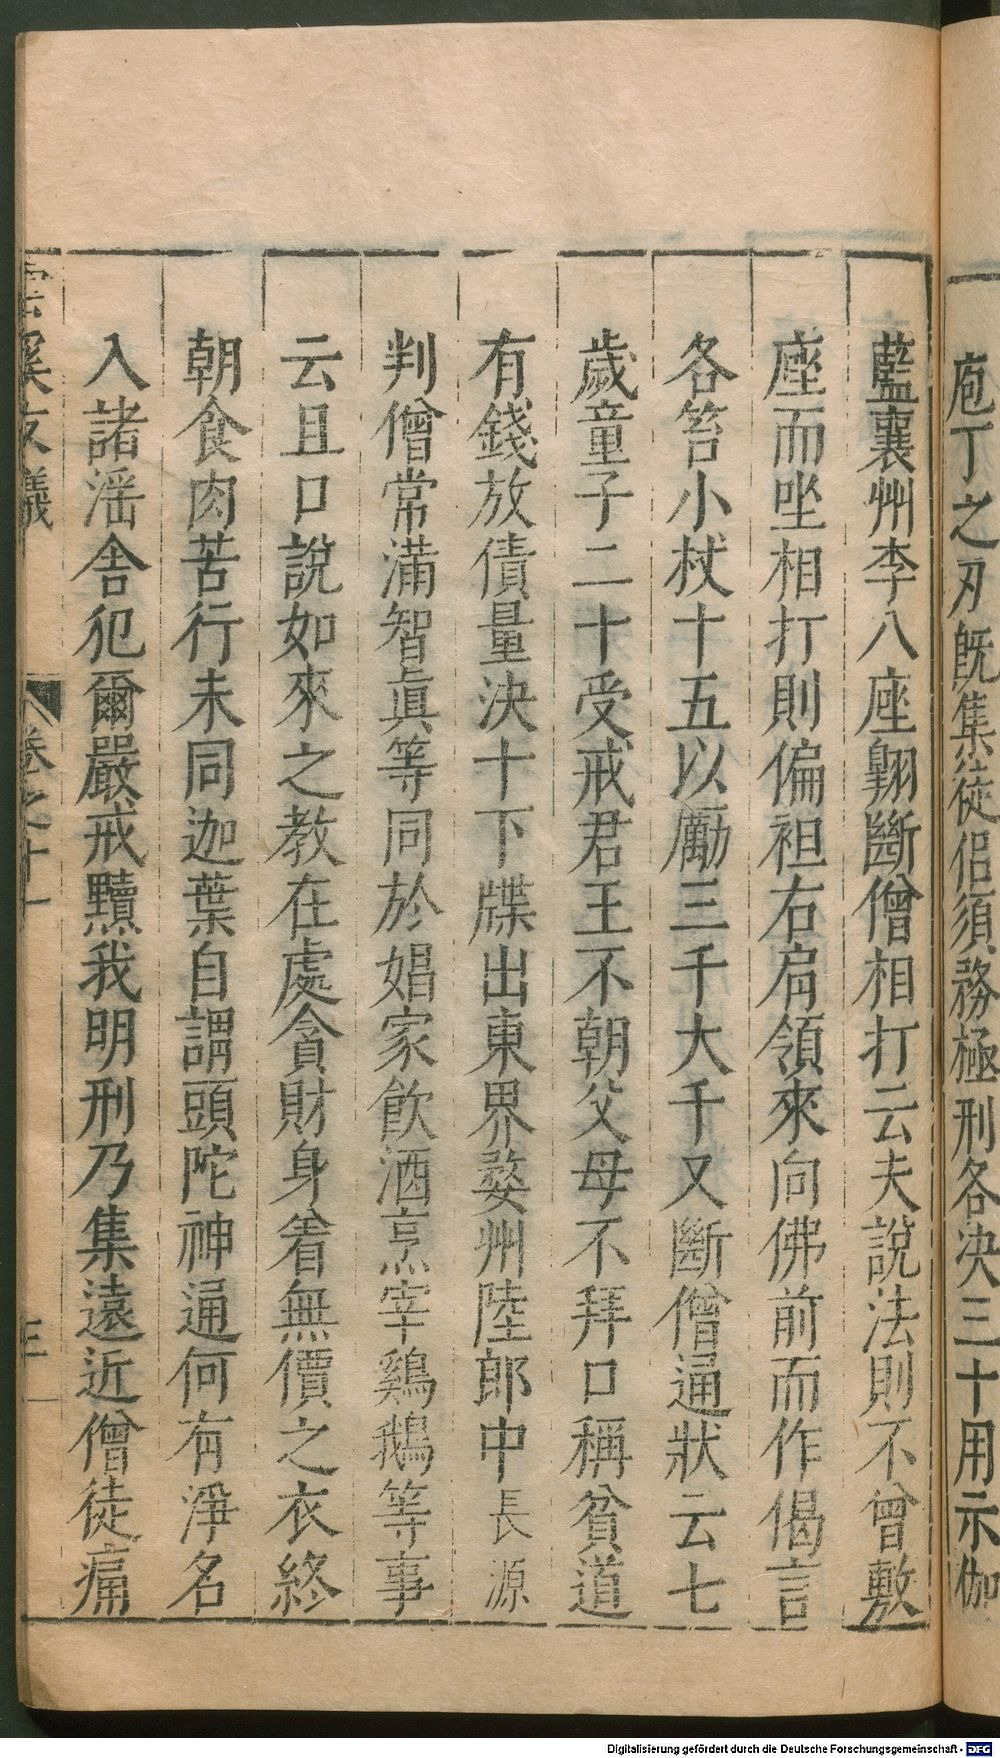 庖丁之刃旣集徒侣須務極刑各決三十用示伽
藍襄州李八座翺斷僧相打云夫說法則不曾敷
座而坐相打則偏袒右肩領來向佛前而作偈言
各笞小杖十五以勵三千大千又斷僧通狀云七
歲童子二十受戒君王不朝父母不拜口稱貧道
有錢放債量決十下牒出東界婺州陸郎中長源
判僧常滿智眞等同於娼家飮酒烹宰鷄鵝等事
云且口說如來之教在處貪財身着無價之衣終
朝食肉苦行未同迦葉自謂頭陀神通何有淨名
入諸滛舍犯爾嚴戒黷我明刑乃集遠近僧徒痛
雲溪友議 卷之十一 三
Digitalisierung gefördert durch die Deutsche Forschungsgemeinschaft - DFG